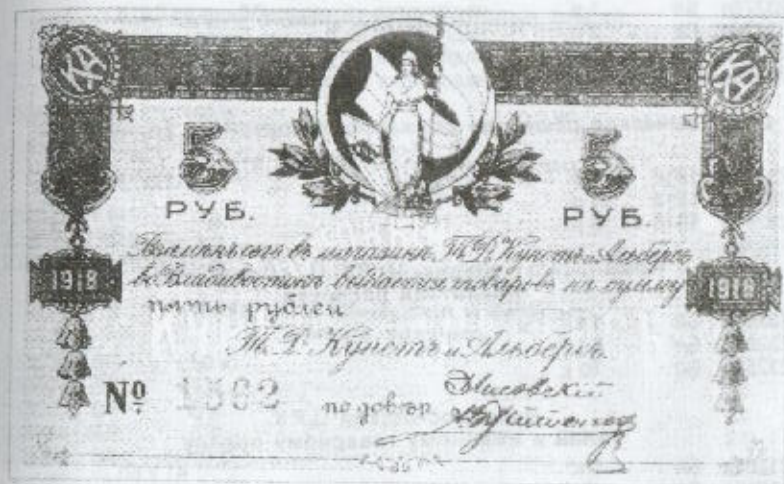 КА КА
5 5
РУБ. РУБ.
Взамѣнъ сего въ магазинѣ Т. Д. Кунстъ и Альберсъ
во Владивостокѣ выдается товаровъ на сумму
1918 1918
пять рублей
Т. Д. Кунстъ и Альберсъ.
№ 1562 по довѣр.